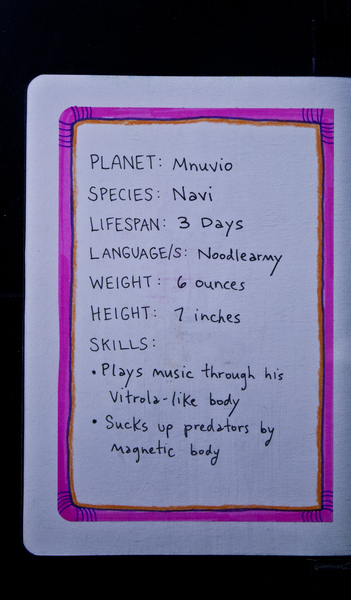 PLANET: Mnuvio
SPECIES: Navi
LIFESPAN: 3 Days
LANGUAGE/S: Noodlearmy
WEIGHT: 6 ounces
HEIGHT: 7 inches
SKILLS:
• Plays music through his
Vitrola-like body
• Sucks up predators by
magnetic body